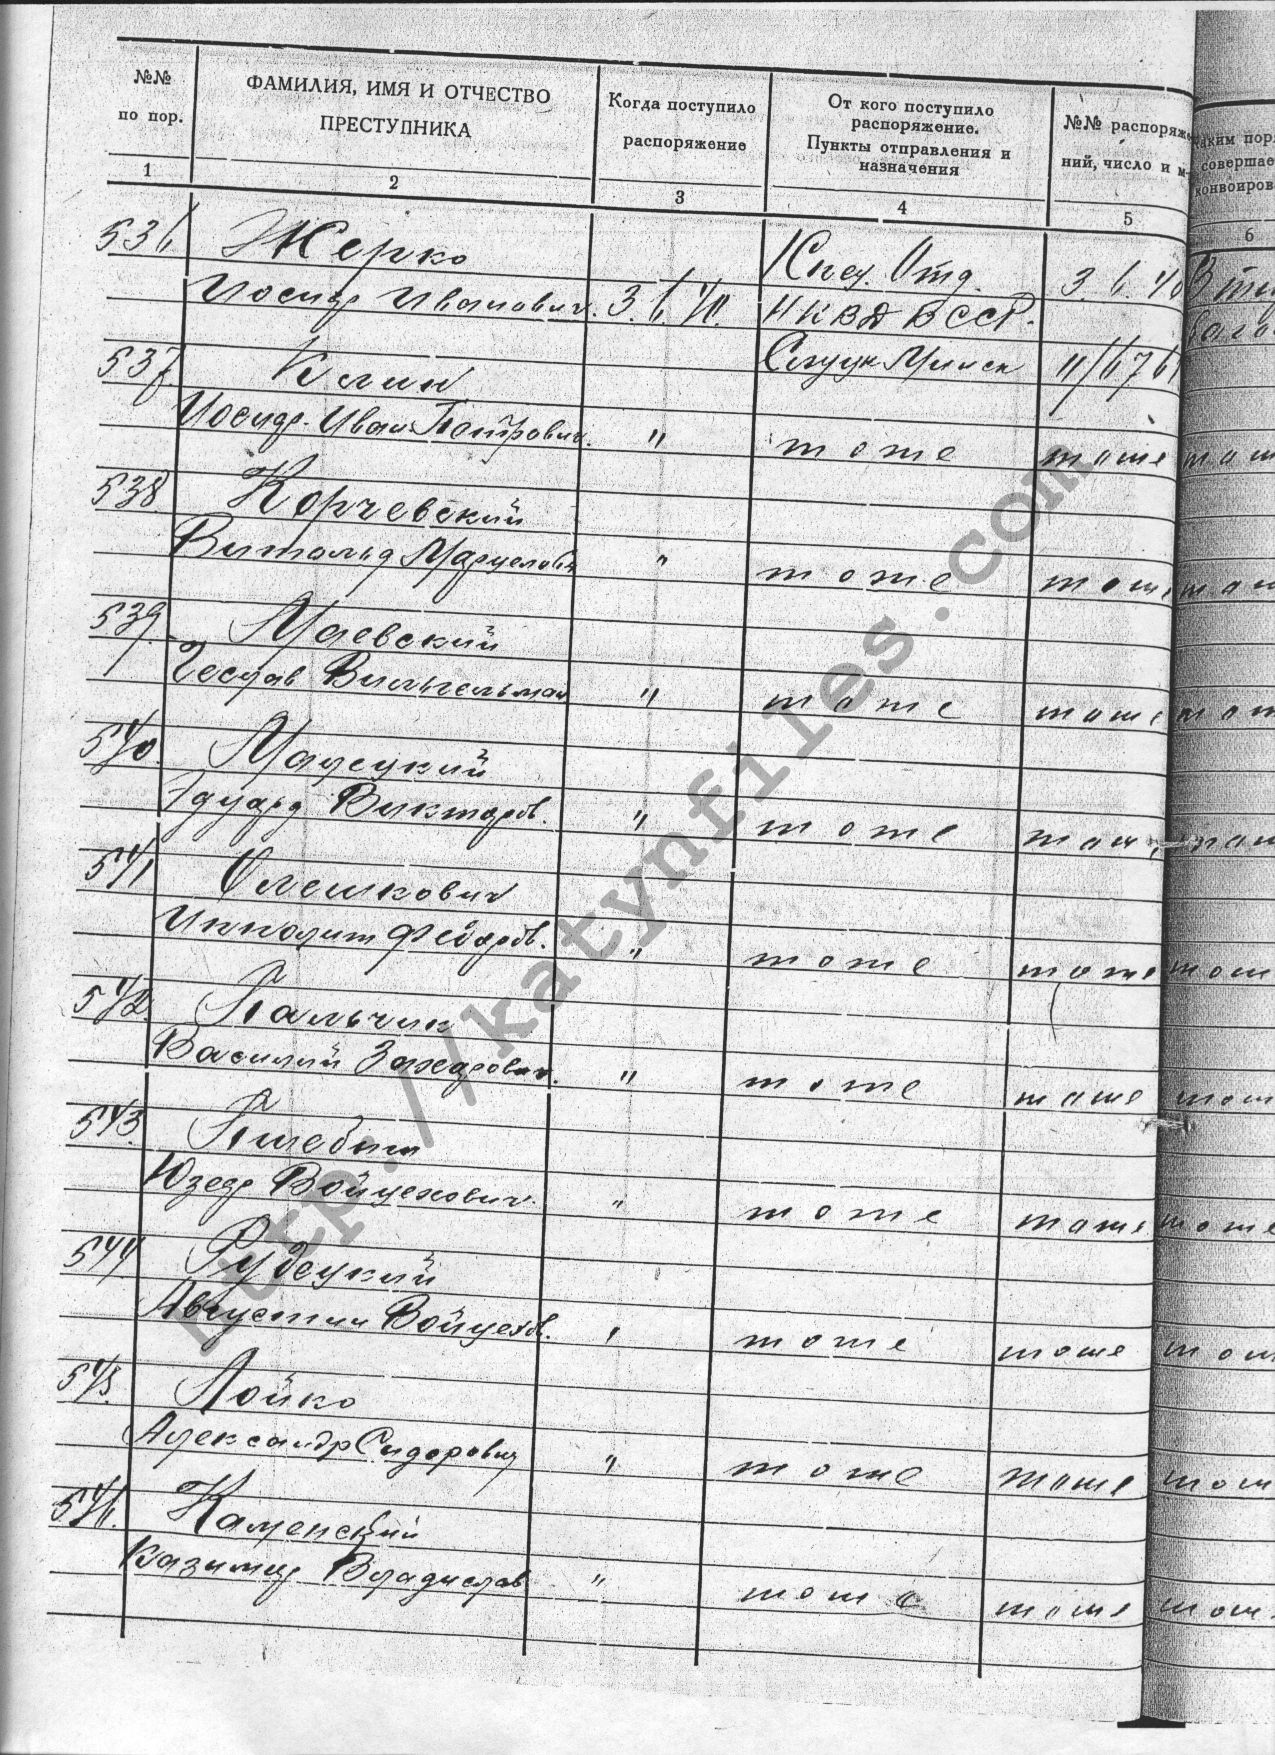 №№ по пор.
ФАМИЛИЯ, ИМЯ И ОТЧЕСТВО ПРЕСТУПНИКА
Когда поступило распоряжение
От кого поступило распоряжение. Пункты отправления и назначения
№№ распоряже
ний, число и м
аким пор
совершае
конвоиров
1 2 3 4 5 6
536 Жерко Спец. Отд. 3.6.40
Иосиф Иванович. 3.6.40. НКВД БССР.
537 Клин Слуцк Минск 11/6761
Иосиф-Иван Петрович. " тоже тоже
538 Корчевский
Витольд " тоже тоже
539. Маевский
Чеслав Вильгельмов " тоже тоже
540.
Эдуард Викторов. " тоже
541 Олешкович
Ипполит Федоров. " тоже тоже
542. Пальчик
Василий Захарович. " тоже тоже
543.
Юзеф Войцехович. " тоже тоже тоже
544 Рудецкий
Августин Войцехов. " тоже тоже
545. Лойко
Александр Сидорович " тоже тоже
546. Каменский
Казимир Владислав " тоже тоже
http://katynfiles.com